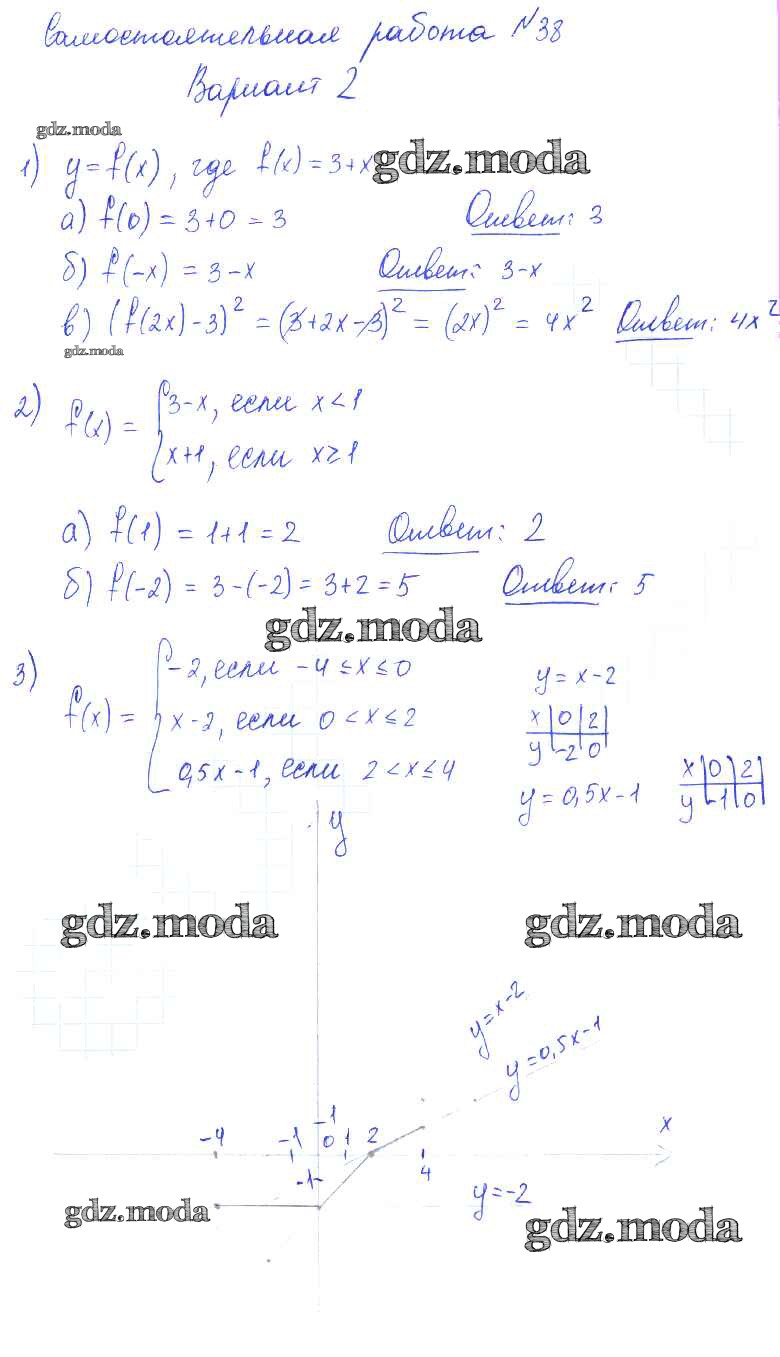 Самостоятельная работа №38
Вариант 2
gdz.moda
1) y = f(x), где f(x) = 3+x
gdz.moda
а) f(0) = 3+0 = 3 Ответ: 3
б) f(-x) = 3-x Ответ: 3-x
в) (f(2x)-3)² = (3+2x-3)² = (2x)² = 4x² Ответ: 4x²
gdz.moda
2) f(x) = { 3-x, если x<1
x+1, если x≥1
а) f(1) = 1+1 = 2 Ответ: 2
б) f(-2) = 3-(-2) = 3+2 = 5 Ответ: 5
gdz.moda
3) f(x) = { -2, если -4 ≤ x ≤ 0
x-2, если 0 < x ≤ 2
0,5x-1, если 2 < x ≤ 4
y = x-2
x | 0 | 2
y | -2 | 0
y = 0,5x-1
x | 0 | 2
y | -1 | 0
y
gdz.moda gdz.moda
y=x-2
y=0,5x-1
-4 -1 -1 0 1 2 x
-1- 4
y=-2
gdz.moda gdz.moda